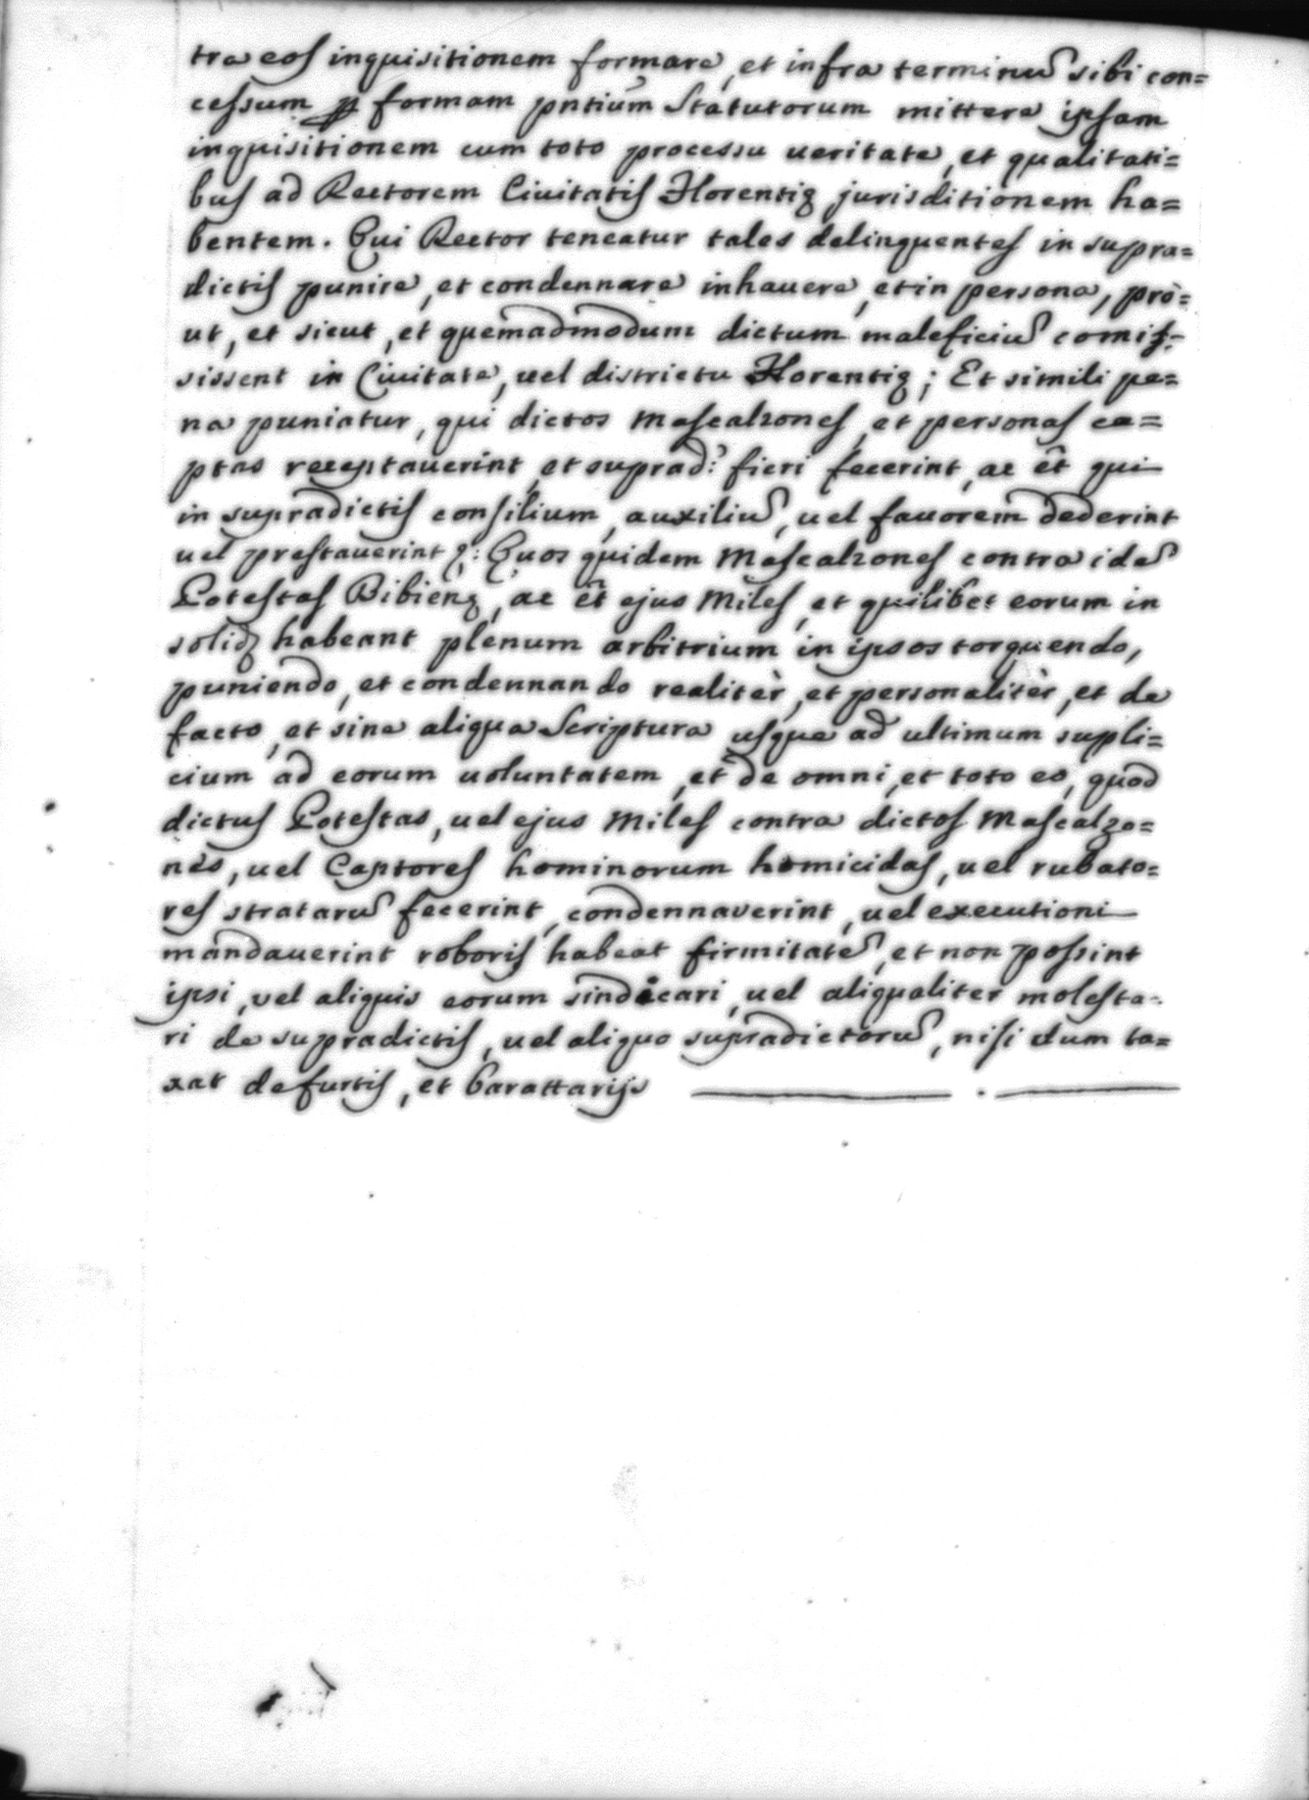 tra eos inquisitionem formare, et infra terminũ sibi con=
cessum ꝑ formam pñtium Statutorum mittere ipsam
inquisitionem cum toto processu veritate, et qualitati=
bus ad Rectorem Civitatis Florentię jurisditionem ha=
bentem. Qui Rector teneatur tales delinquentes in supra=
dictis punire, et condennare in havere, et in persona, prò=
ut, et sicut, et quemadmodum dictum maleficiũ comis=
sissent in Civitate, vel districtu Florentię; Et simili pe=
na puniatur, qui dictos Mascalzones, et personas ca=
ptas receptaverint, et suprad: fieri fecerint, ac et̃ qui
in supradictis consilium, auxiliũ, vel favorem dederint
vel prestaverint &: Quos quidem Mascalzones contra idẽ
Potestas Bibienę, ac et̃ ejus Miles, et quilibet eorum in
solid habeant plenum arbitrium in ipsos torquendo,
puniendo, et condennando realitèr, et personalitèr, et de
facto, et sine aliqua Scriptura usque ad ultimum supli=
cium ad eorum voluntatem, et de omni, et toto eo, quod
dictus Potestas, vel ejus Miles contra dictos Mascalzo=
nes, vel Captores hominorum homicidas, vel rubato=
res stratarũ fecerint, condennaverint, vel executioni
mandaverint roboris habeat firmitatẽ, et non possint
ipsi, vel aliquis eorum sindicari, vel aliqualiter molesta=
ri de supradictis, vel aliquo supradictorũ, nisi dum ta=
xat de furtis, et barattarijs